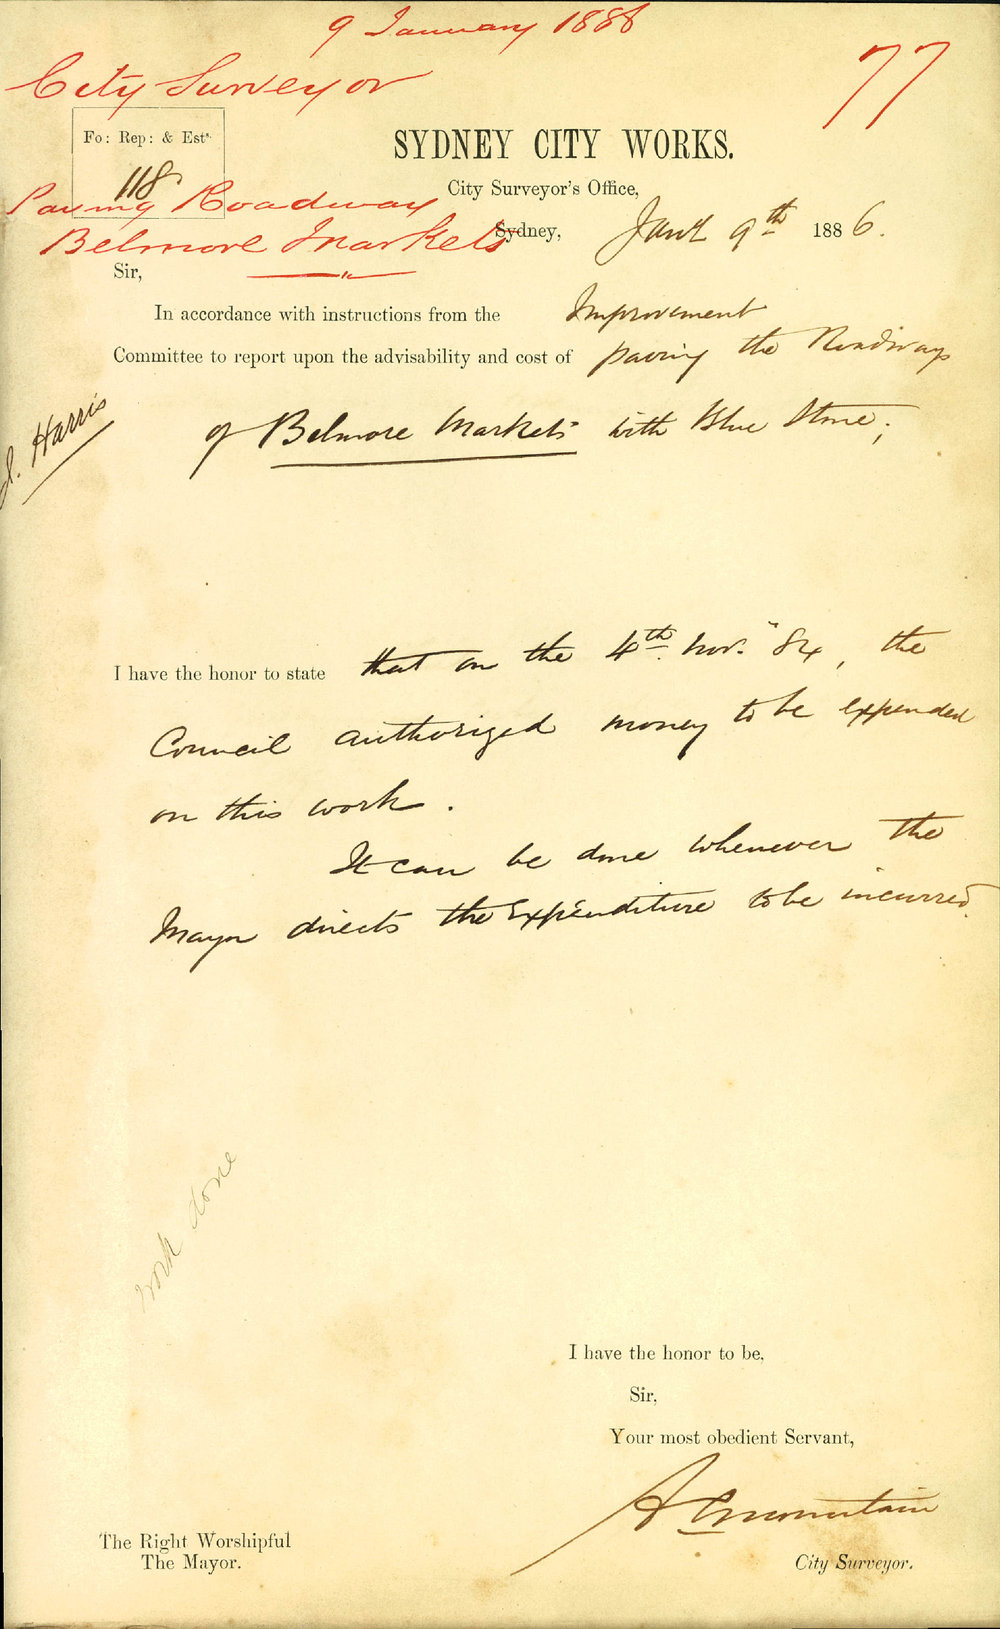 9 January 1886
77
City Surveyor
Fo: Rep: & Ests.
118
SYDNEY CITY WORKS.
City Surveyor's Office,
Paving Roadway
Belmore Markets
Sydney, Jany 9th 1886.
Sir,
In accordance with instructions from the Improvement
Committee to report upon the advisability and cost of paving the Roadways
J. Harris
of Belmore Markets with Blue Stone;
I have the honor to state that on the 4th. Nov. 84, the
Council authorized money to be expended
on this work.
It can be done whenever the
Mayor directs the Expenditure to be incurred.
work done
I have the honor to be,
Sir,
Your most obedient Servant,
A C Mountain
The Right Worshipful
The Mayor.
City Surveyor.